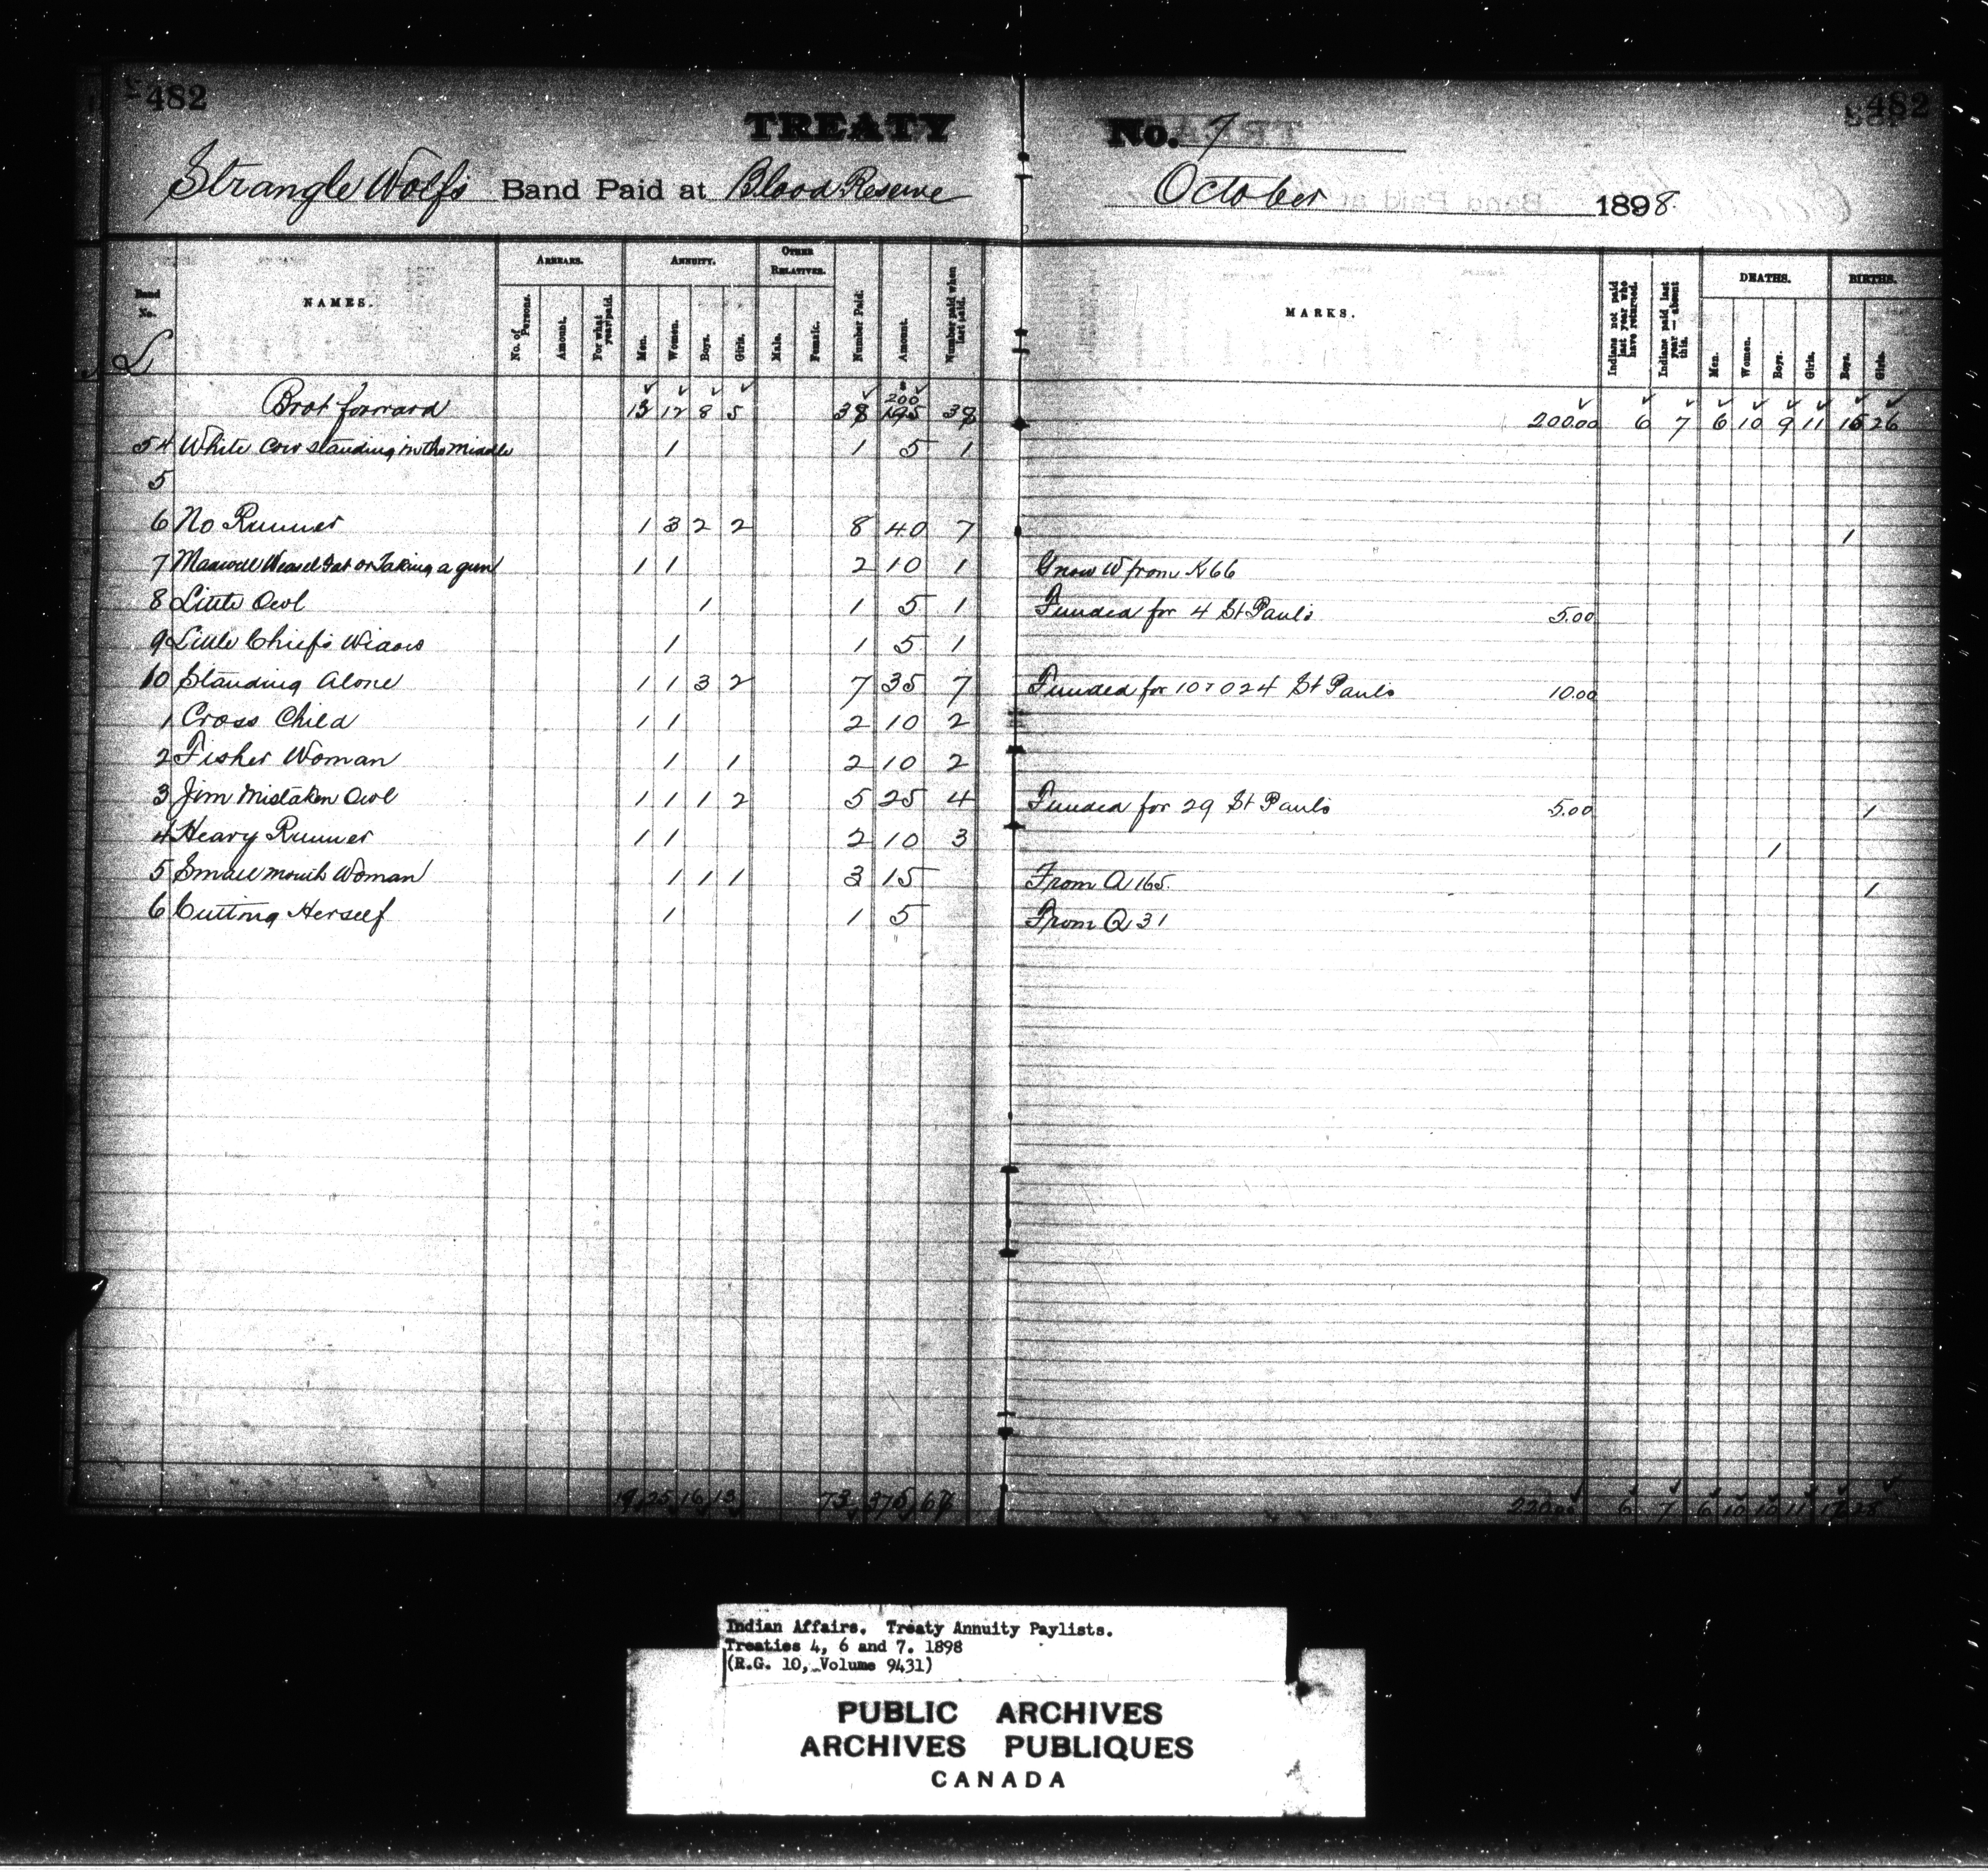 482
482
TREATY No. 7
Strangle Wolf's Band Paid at Blood Reserve October 1898
Band No. NAMES. ARREARS. ANNUITY. OTHER RELATIVES. Number Paid. Amount. Number paid when last paid. MARKS. Indians not paid last year who have returned. Indians paid last year — absent this. DEATHS. BIRTHS.
No. of Persons. Amount. For what year paid. Men. Women. Boys. Girls. Male. Female. Men. Women. Boys. Girls. Boys. Girls.
L
Brot forward 12 8 5 38 200 195 200.00 6 7 6 10 9 11 16 26
54 White Cow standing in the Middle 1 1 5 1
5
6 No Runner 1 3 2 2 8 40 7 1
7 Weasel Fat or Taking a gun 1 1 2 10 1 W from K66
8 Little Owl 1 1 5 1 Funded for 4 St Paul's 5.00
9 Little Chief's Widow 1 1 5 1
10 Standing Alone 1 1 3 2 7 35 7 Funded for 107 024 St Paul's 10.00
1 Cross Child 1 1 2 10 2
2 Fisher Woman 1 1 2 10 2
3 Jim Mistaken Owl 1 1 1 2 5 25 4 Funded for 29 St Paul's 5.00 1
4 Heavy Runner 1 1 2 10 3 1
5 Small mouth Woman 1 1 1 3 15 From Q 165. 1
6 Cutting Herself 1 1 5 From Q 31
25 16 13 73 375 220.00 6 7 6 10 10 11 17 28
Indian Affairs. Treaty Annuity Paylists.
Treaties 4, 6 and 7. 1898
(R.G. 10, Volume 9431)
PUBLIC ARCHIVES
ARCHIVES PUBLIQUES
CANADA